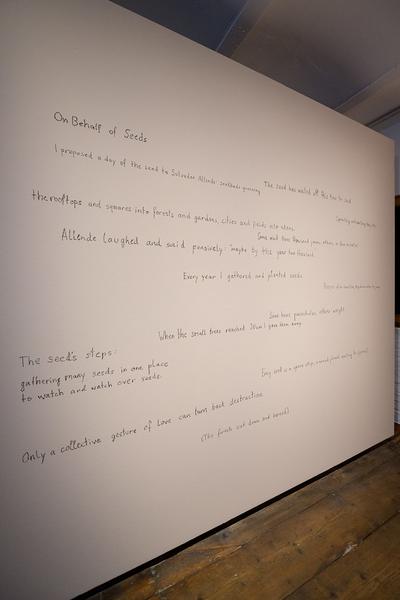 On Behalf of Seeds
I proposed a day of the seed to Salvador Allende: seedbeds greening
The seed has waited all this time to seed
the rooftops and squares into forests and gardens, cities and fields into edens.
Some wait three thousand years, others, a few minutes
Allende laughed and said pensively: "maybe by the year two thousand.
Every year I gathered and planted seeds
Some have parachutes, others weight.
When the small trees reached 20cm I gave them away
The seed's steps:
gathering many seeds in one place
to watch and watch over seeds.
Every seed is a space ship, a
Only a collective gesture of Love can turn back destruction
(The forests cut down and burned)